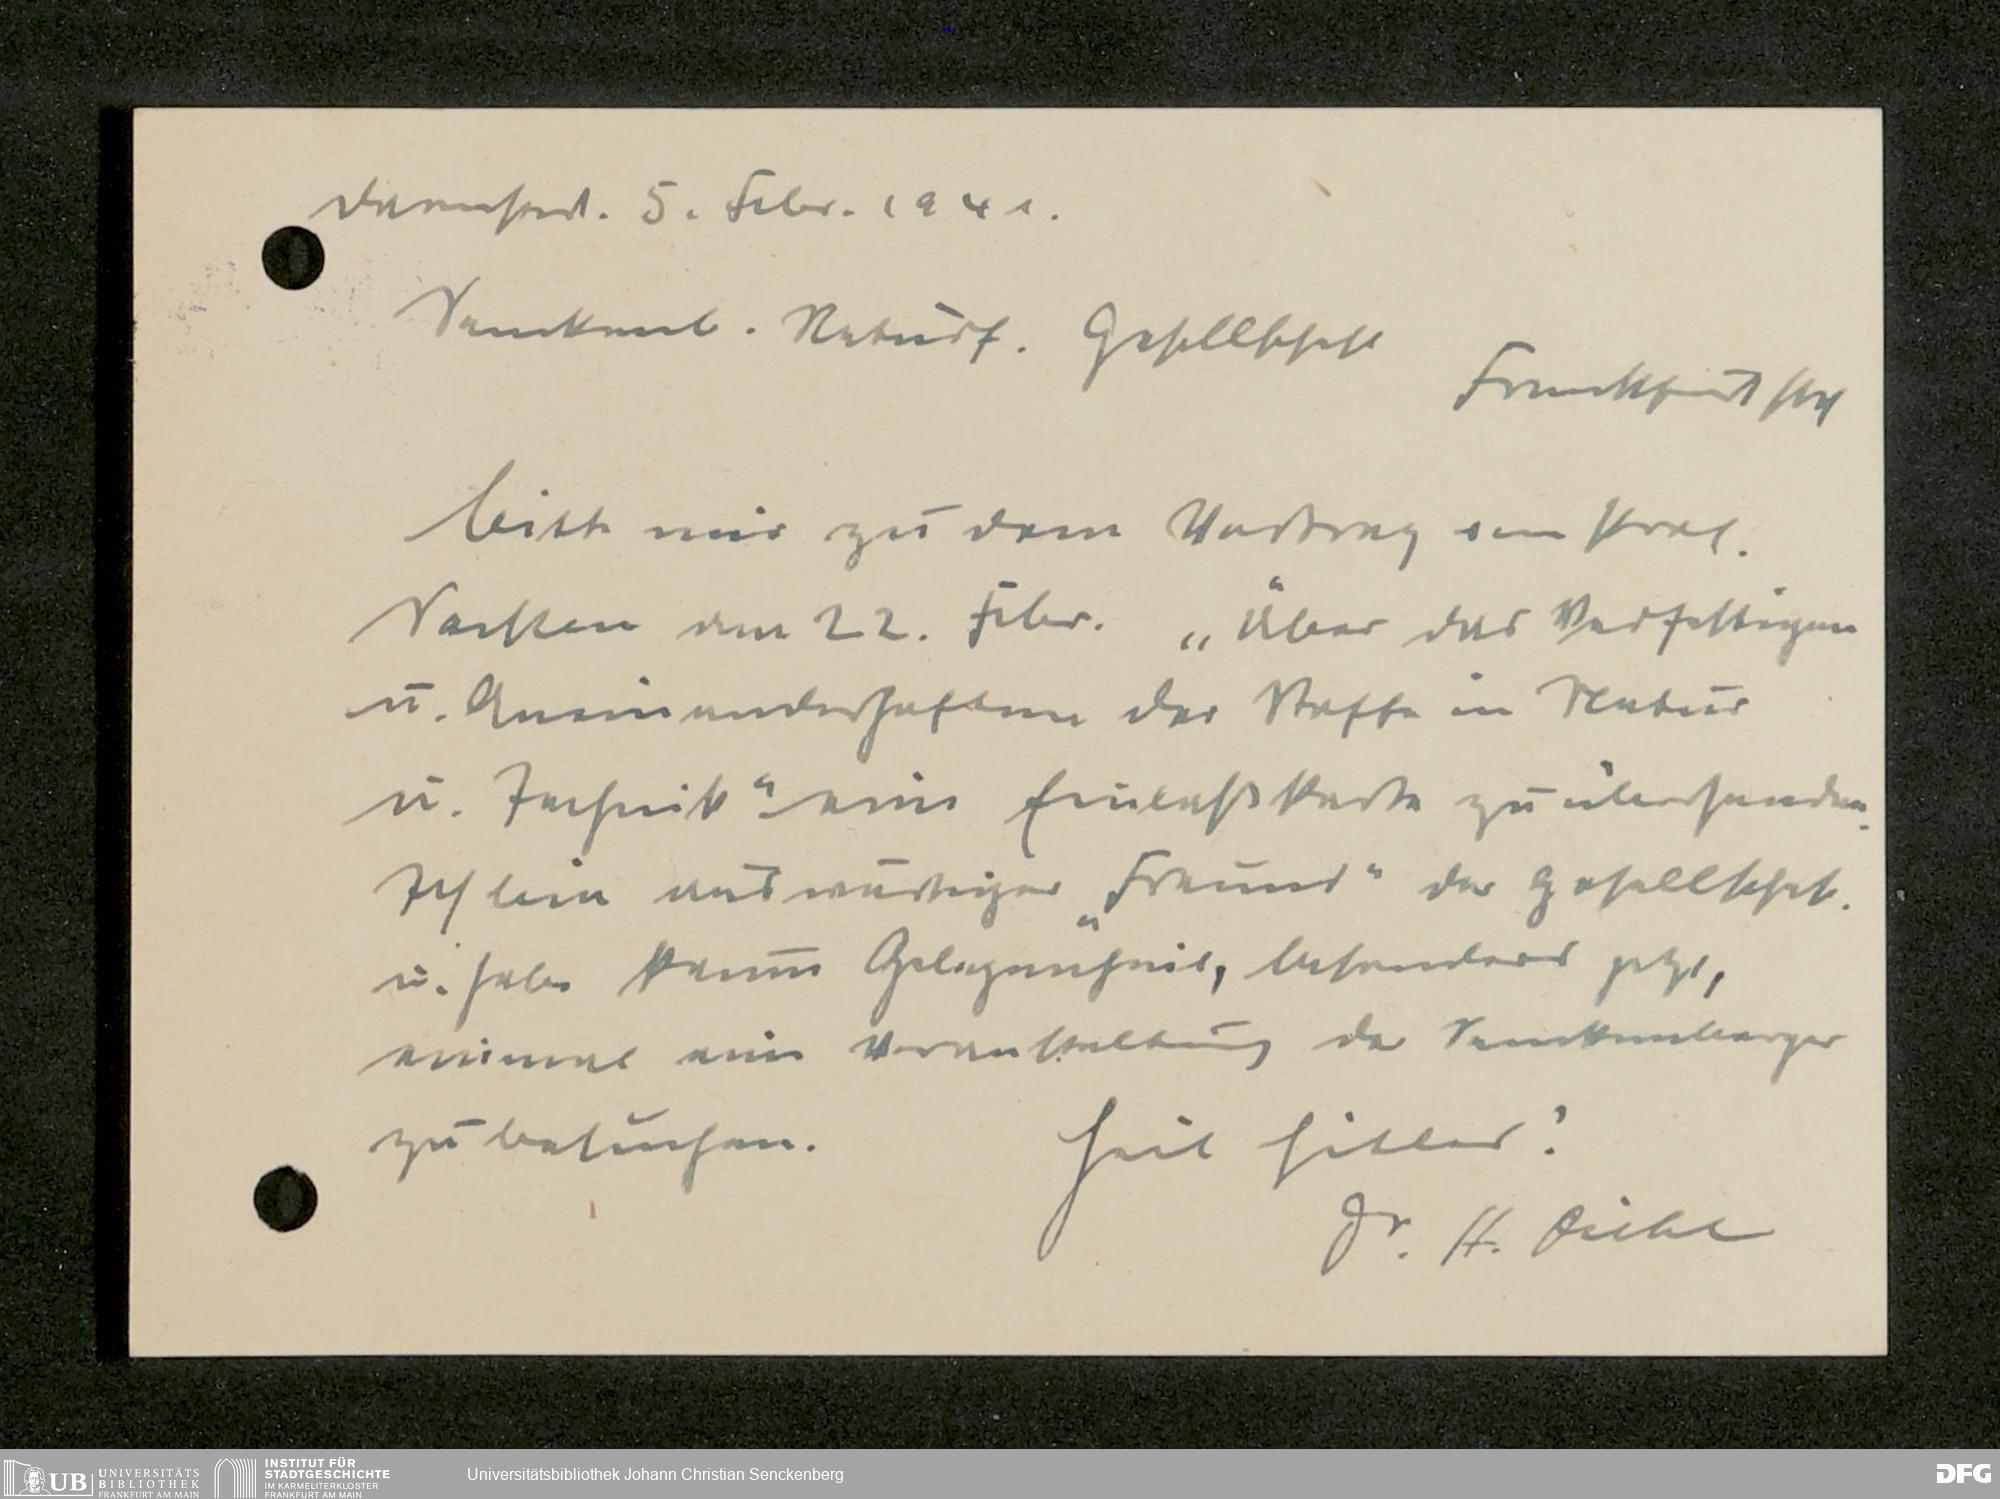 Darmstadt. 5. Febr. 1941.
Senckenb. Naturf. Gesellschaft
Frankfurt /M
bitte mir zu dem Vortrag von Prof.
am 22. Febr. „Über das Verfestigen
u. Aneinanderhaften der Stoffe in Natur
u. Technik" eine Einlaßkarte zu übersenden.
Ich bin auswärtiger „Freund" der Gesellschaft.
u. habe kaum Gelegenheit, besonders jetzt,
einmal eine Veranstaltung der Senckenberger
zu besuchen. Heil Hitler!
Dr. H. Diehl
UB UNIVERSITÄTS
BIBLIOTHEK
FRANKFURT AM MAIN
INSTITUT FÜR
STADTGESCHICHTE
IM KARMELITERKLOSTER
FRANKFURT AM MAIN
Universitätsbibliothek Johann Christian Senckenberg
DFG